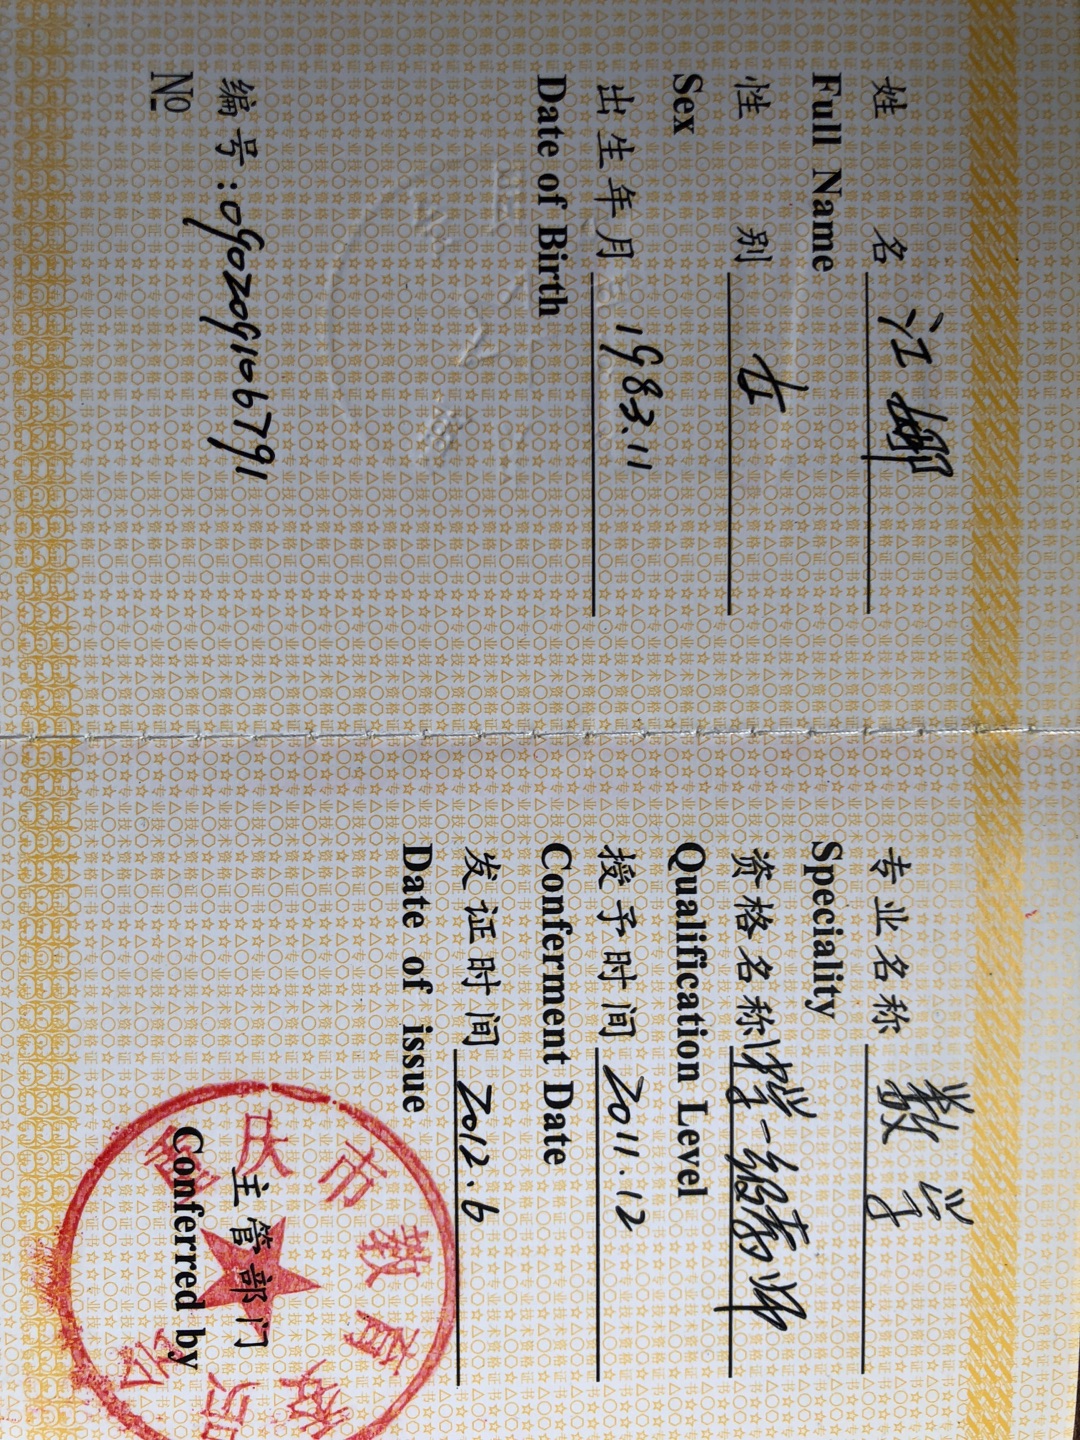 姓 名 江娜
Full Name
性 别 女
Sex
出生年月 1983.11
Date of Birth
编号:09020910b791
№
专业名称 数学
Speciality
资格名称 中学一级教师
Qualification Level
授予时间 2011.12
Conferment Date
发证时间 2012.6
Date of issue
主管部门
Conferred by
安庆市教育